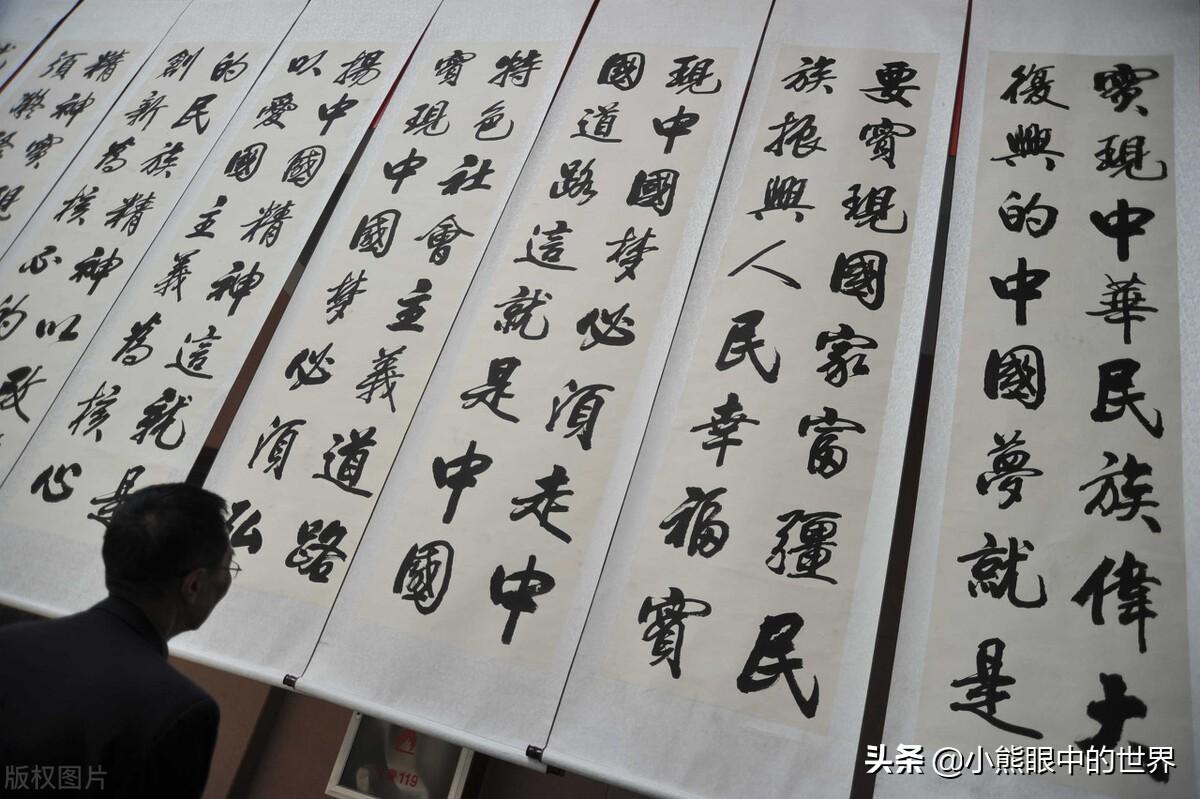 實現中華民族偉大
復興的中國夢就是
要實現國家富彊民
族振興人民幸福實
現中國梦必須走中
國道路這就是中國
特色社會主義道路
實現中國梦必須弘
揚中國精神這就是
以愛國主義為核心
的民族精神以改
創新為核心的
精神實現
須凝
119
头条 @小熊眼中的世界
版权图片